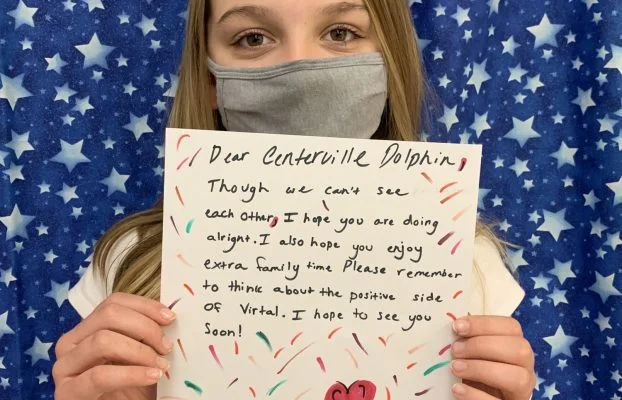 Dear Centerville Dolphin,
Though we can't see
each other, I hope you are doing
alright. I also hope you enjoy
extra family time Please remember
to think about the positive side
of Virtal. I hope to see you
Soon!